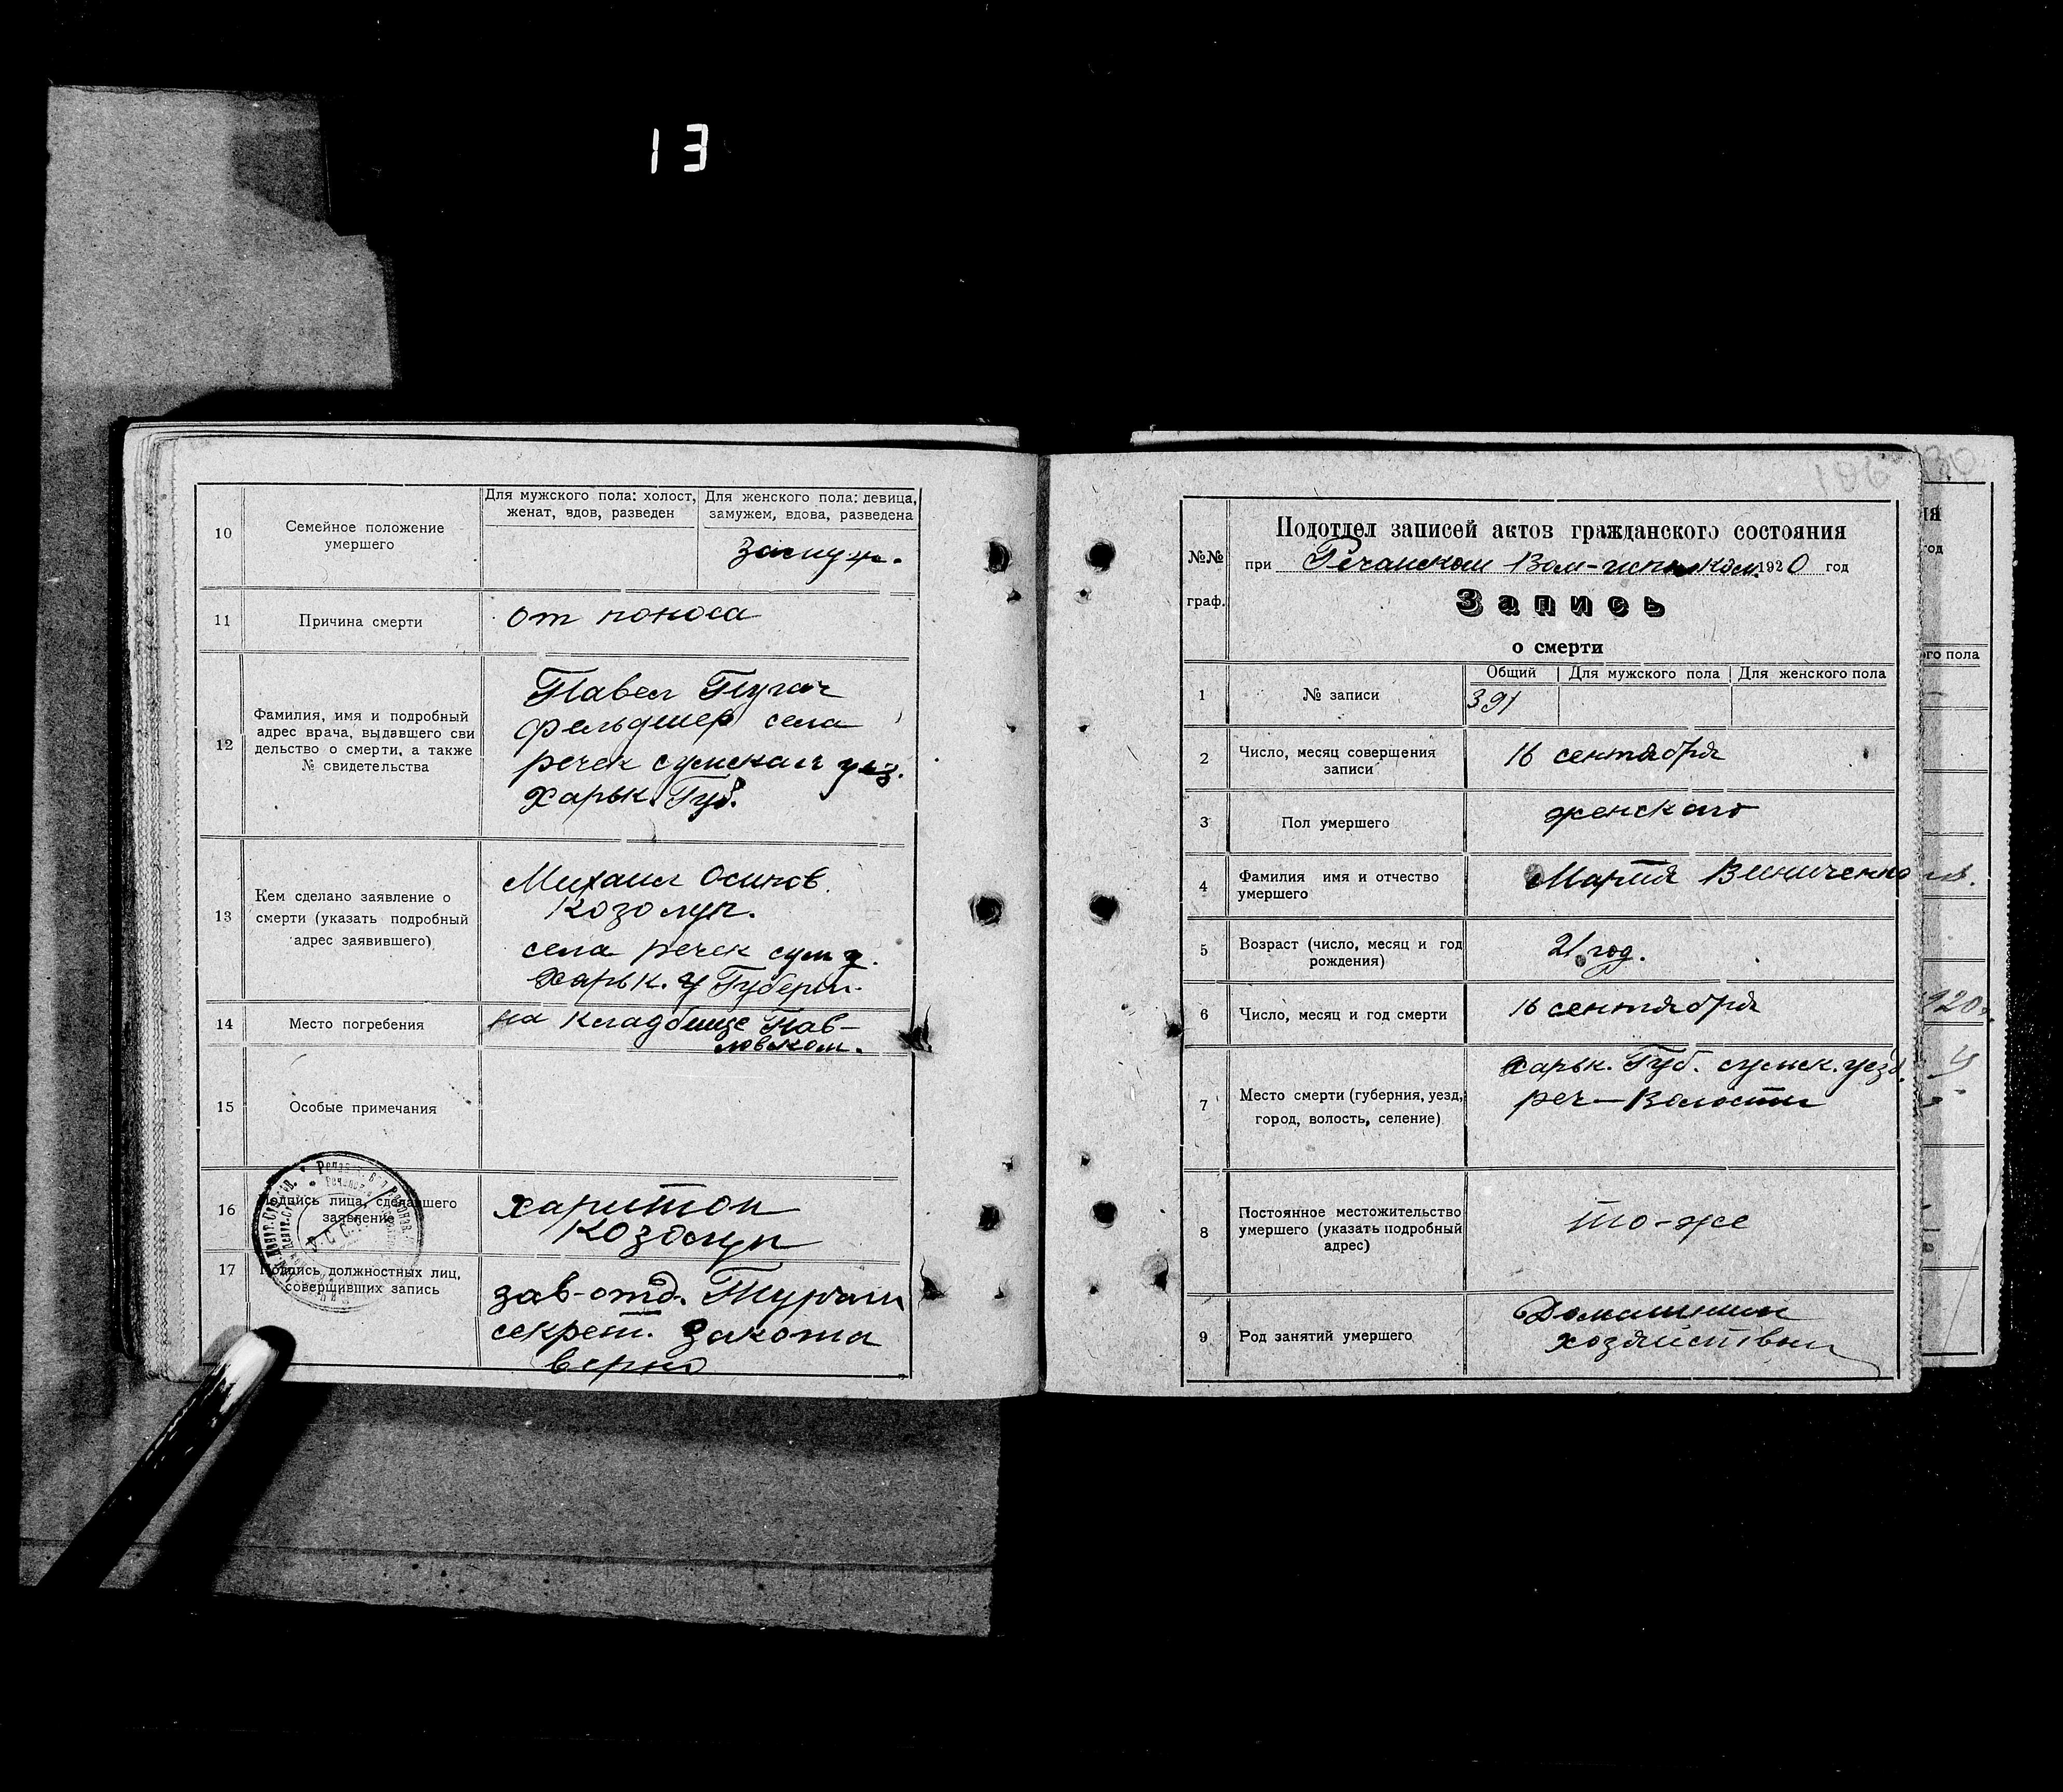 13
10
Семейное положение
умершего
Для мужского пола: холост,
женат, вдов, разведен
Для женского пола: девица,
замужем, вдова, разведена
замуж.
11
Причина смерти
от поноса
12
Фамилия, имя и подробный
адрес врача, выдавшего сви
дельство о смерти, а также
№ свидетельства
Павел Пугач
фельдшер села
речек сумскаи уез.
Харьк. Губ.
13
Кем сделано заявление о
смерти (указать подробный
адрес заявившего)
Михаил Осипов.
Козолуп.
села речек сум у.
Харьк. У Губерни.
14
Место погребения
на кладбище Пав-
ловском.
15
Особые примечания
16
Подпись лица, сделавшего
заявление
харитон
Козолуп
17
Подпись должностных лиц,
совершивших запись
зав-отд.
секрет.
верно
186
30
№№
граф.
Подотдел записей актов гражданского состояния
при Речанском Вол-исп ком. 1920 год
Запись
о смерти
1
№ записи
Общий
Для мужского пола
Для женского пола
391
2
Число, месяц совершения
записи
16 сентября
3
Пол умершего
женскаго
4
Фамилия имя и отчество
умершего
Мария Винниченко
5
Возраст (число, месяц и год
рождения)
21 год.
6
Число, месяц и год смерти
16 сентября
7
Место смерти (губерния, уезд,
город, волость, селение)
харьк. Губ. сумск. уезд.
реч-Волости
8
Постоянное местожительство
умершего (указать подробный
адрес)
то-же
9
Род занятий умершего
Домашним
хозяйством
ия
год
го пола
920